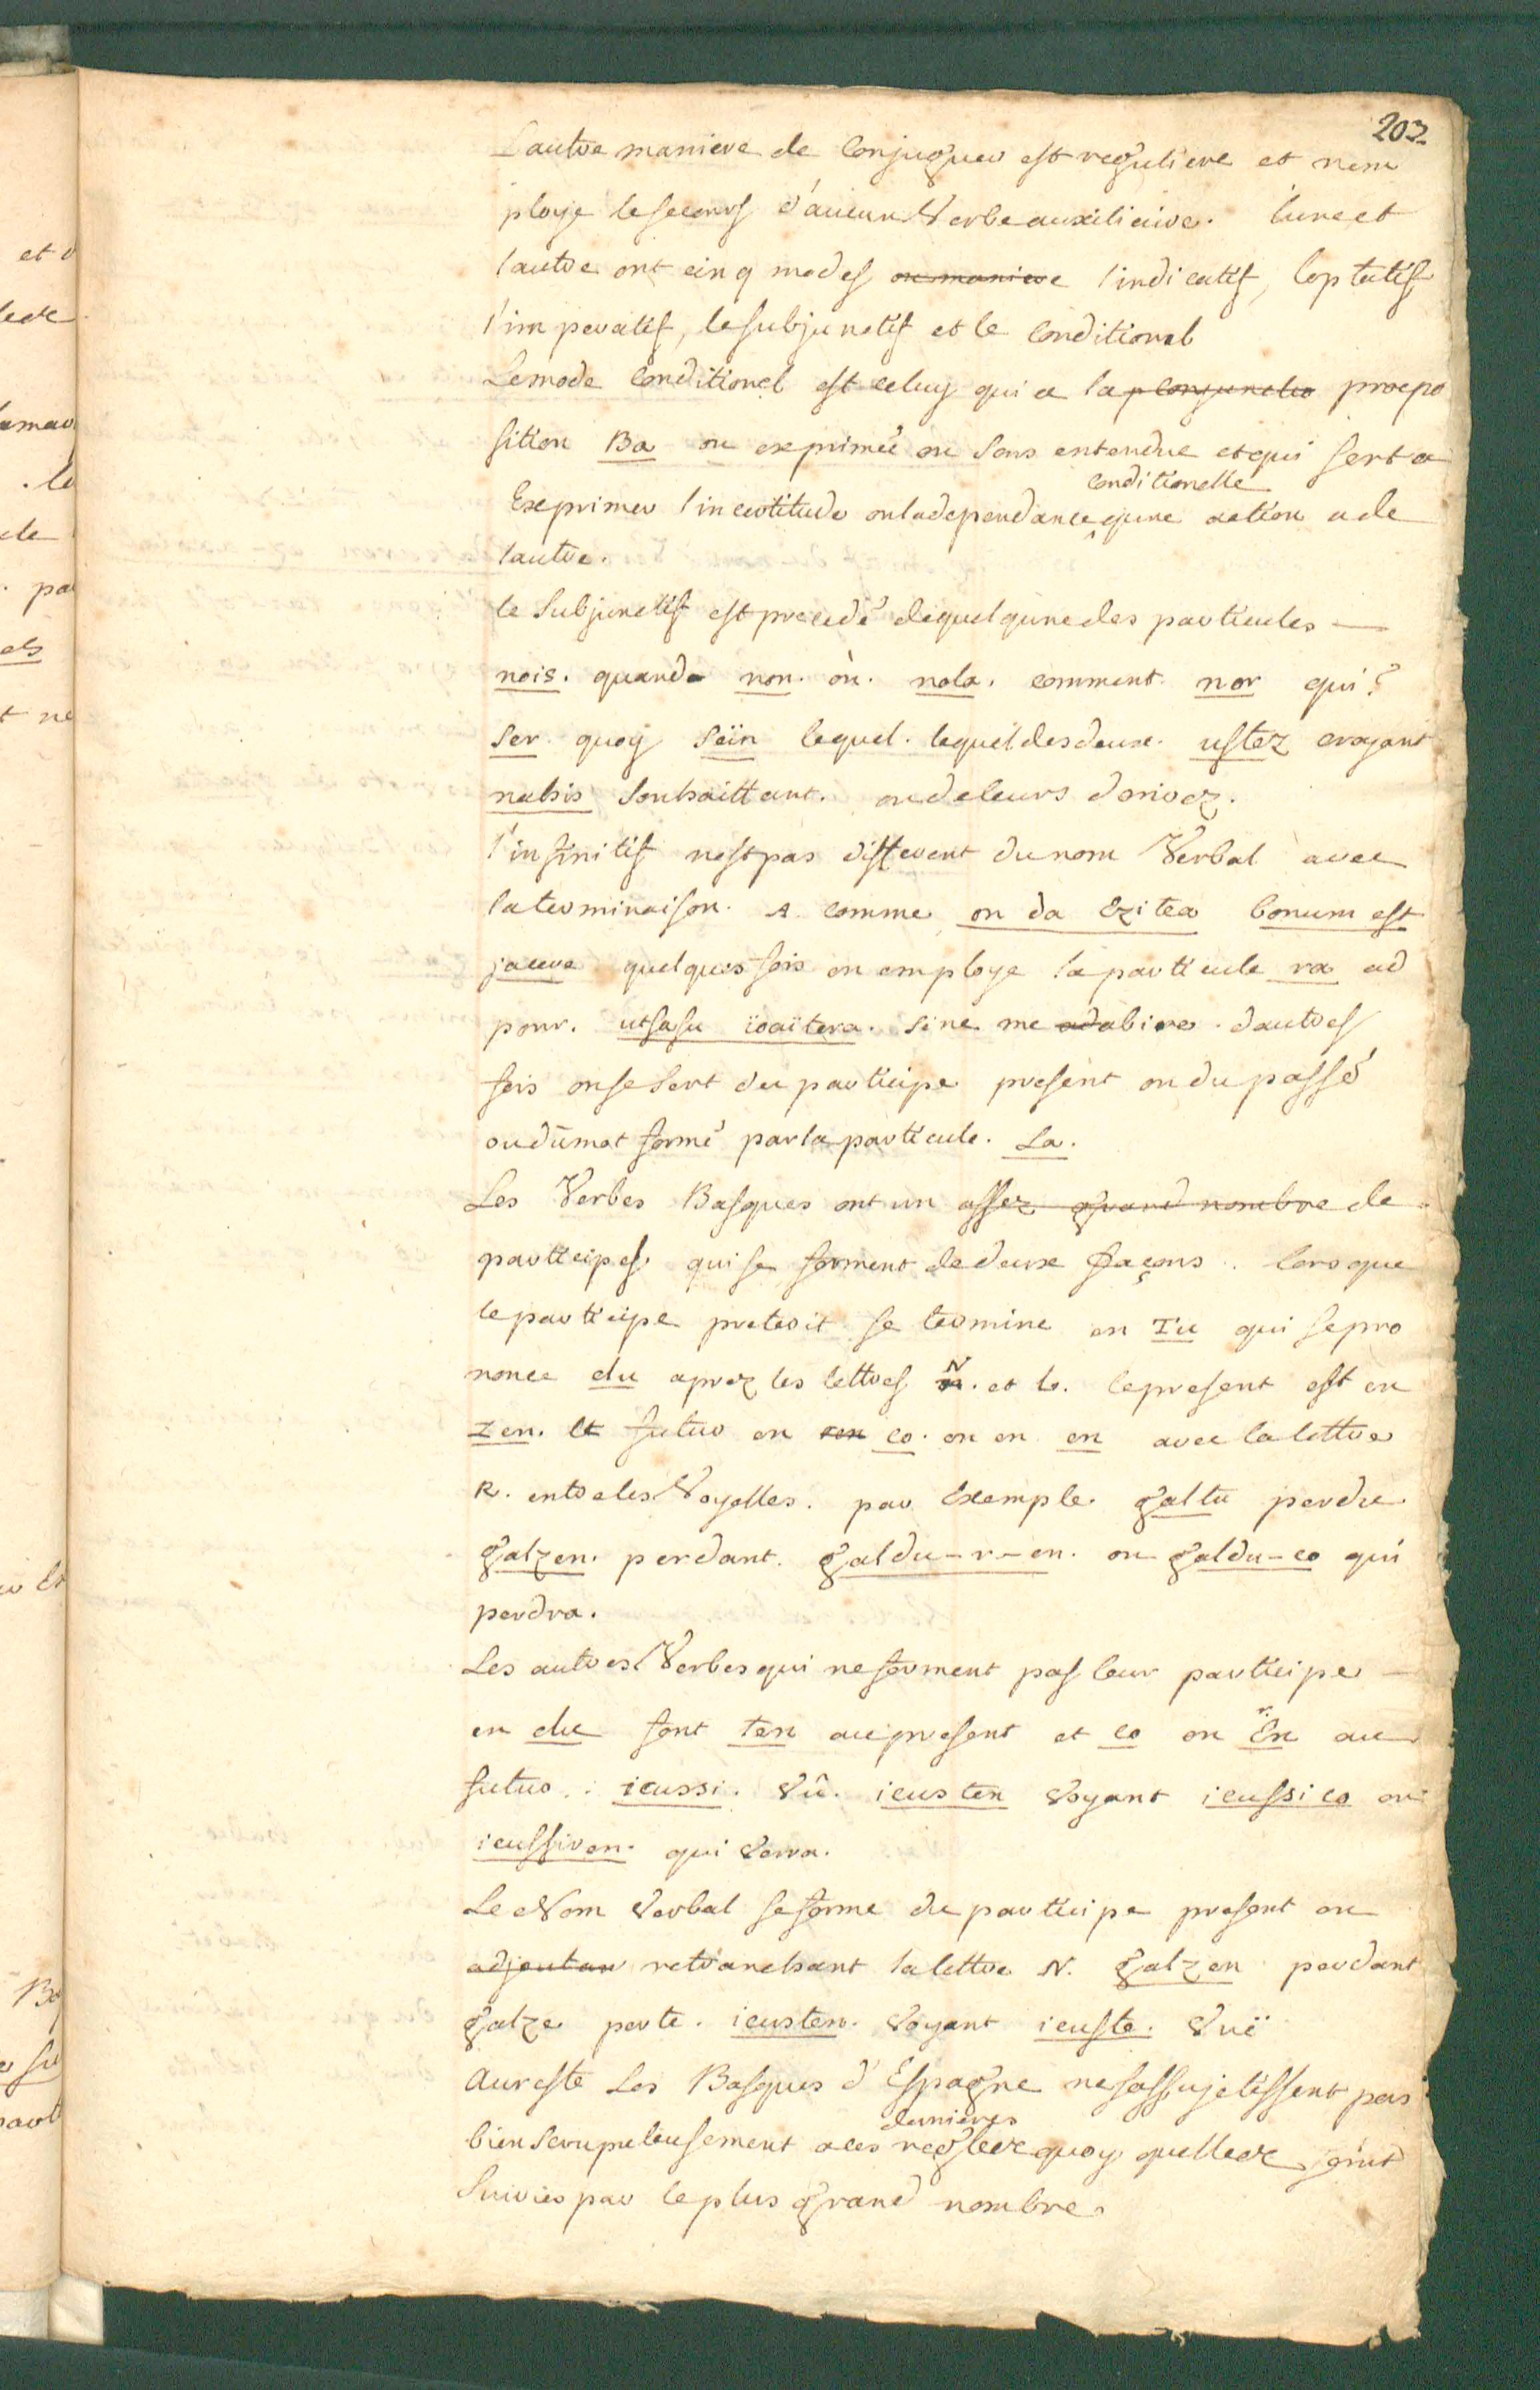 202
L'autre maniere de Conjuguer est reguliere et nem
ploye le secours d'aucun Verbe auxiliaire. l'une et
l'autre ont cinq modes ou maniere l'indicatif, l'optatif
l'imperatif, le subjunctif et le Conditionel
Le mode Conditionel est celuy qui a la p conjunctio praepo
sition Ba ou exprimée ou sous entendue et qui sert a
conditionelle
Exprimer l'incertitude ou la dependance qu'une action a de
l'autre.
le Subjunctif est precedé de quelqu'une des particules —
nois. quand non. où. nola. comment nor qui?
Ser quoy Seïn lequel. lequel des deux. ustez croyant
nahis Souhaittant. ou de leurs derivez.
l'infinitif n'est pas different du nom Verbal avec
la terminaison. A comme on da Ezitea bonum est
jacere quelques fois on employe la particule ra ad
pour. utsasu ioaïtera. sine me adabire. d'autres
fois on se sert du participe present ou du passé
ou du mot formé par la particule. La.
Les Verbes Basques ont un assez grand nombre de
participes qui se forment de deux façons. lors que
le participe preterit se termine en Tu qui se pro
nonce du aprez les lettres N. et L. le present est en
zen. et futur en ren co. ou en en avec la lettre
R. entre les Voyelles. par Exemple. galtu perdu
galzen. perdant. galdu-r-en. ou galdu-co qui
perdra.
Les autres Verbes qui ne forment pas leur participe —
en du font ten au present et co ou r. En au
futur. : icussi. Vû. icusten Voyant icussico ou
icussiren. qui Verra.
Le Nom Verbal se forme du participe present en
adjoutan retranchant la lettre N. galzen perdant
galze perte. icusten. Voyant icuste. Vuë
Au reste Les Basques d'Espagne ne s'assujetissent pas
dernieres
bien scrupuleusement a ces regles quoy qu'elles soint
Suivies par le plus grand nombre.